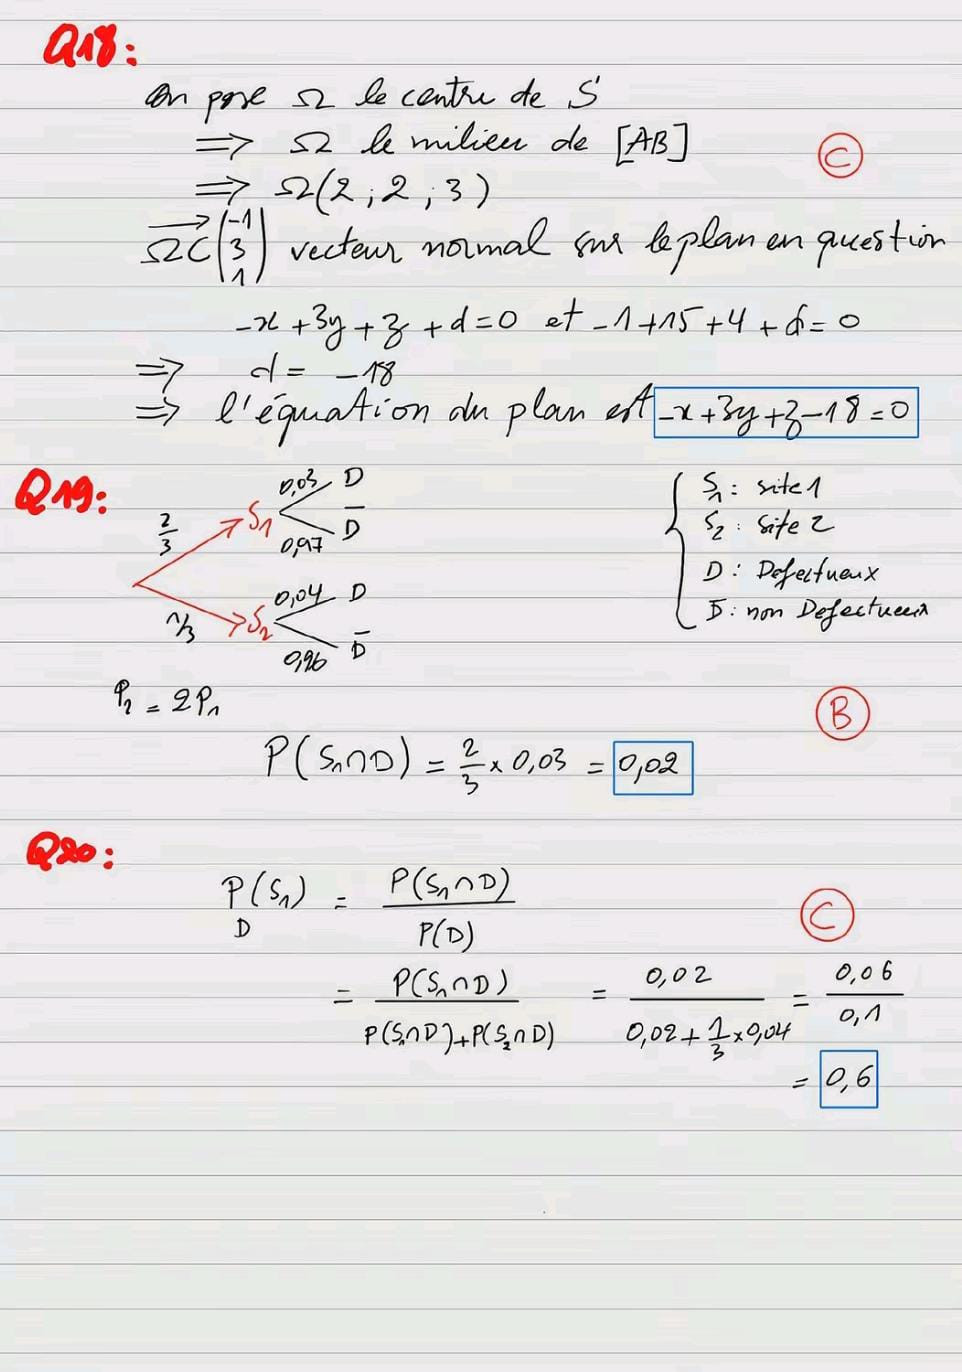 Q18:
On pose Ω le centre de S
⟹ Ω le milieu de [AB]
C
⟹ Ω(2 ; 2 ; 3)
ΩC⃗ (-1 3 1) vecteur normal sur le plan en question
-x+3y+z+d=0 et -1+15+4+d=0
⟹ d = -18
⟹ l'équation du plan est -x+3y+z-18=0
Q19:
2/3 S₁ 0,03 D
0,97 D̅
1/3 S₂ 0,04 D
0,96 D̅
S₁ : site 1
S₂ : site 2
D : Defectueux
D̅ : non Defectueux
P₂ = 2P₁
B
P(S₁∩D) = 2/3 × 0,03 = 0,02
Q20:
P_D(S₁) = P(S₁∩D) / P(D)
C
= P(S₁∩D) / P(S₁∩D)+P(S₂∩D) = 0,02 / 0,02 + 1/3 × 0,04 = 0,06 / 0,1
= 0,6